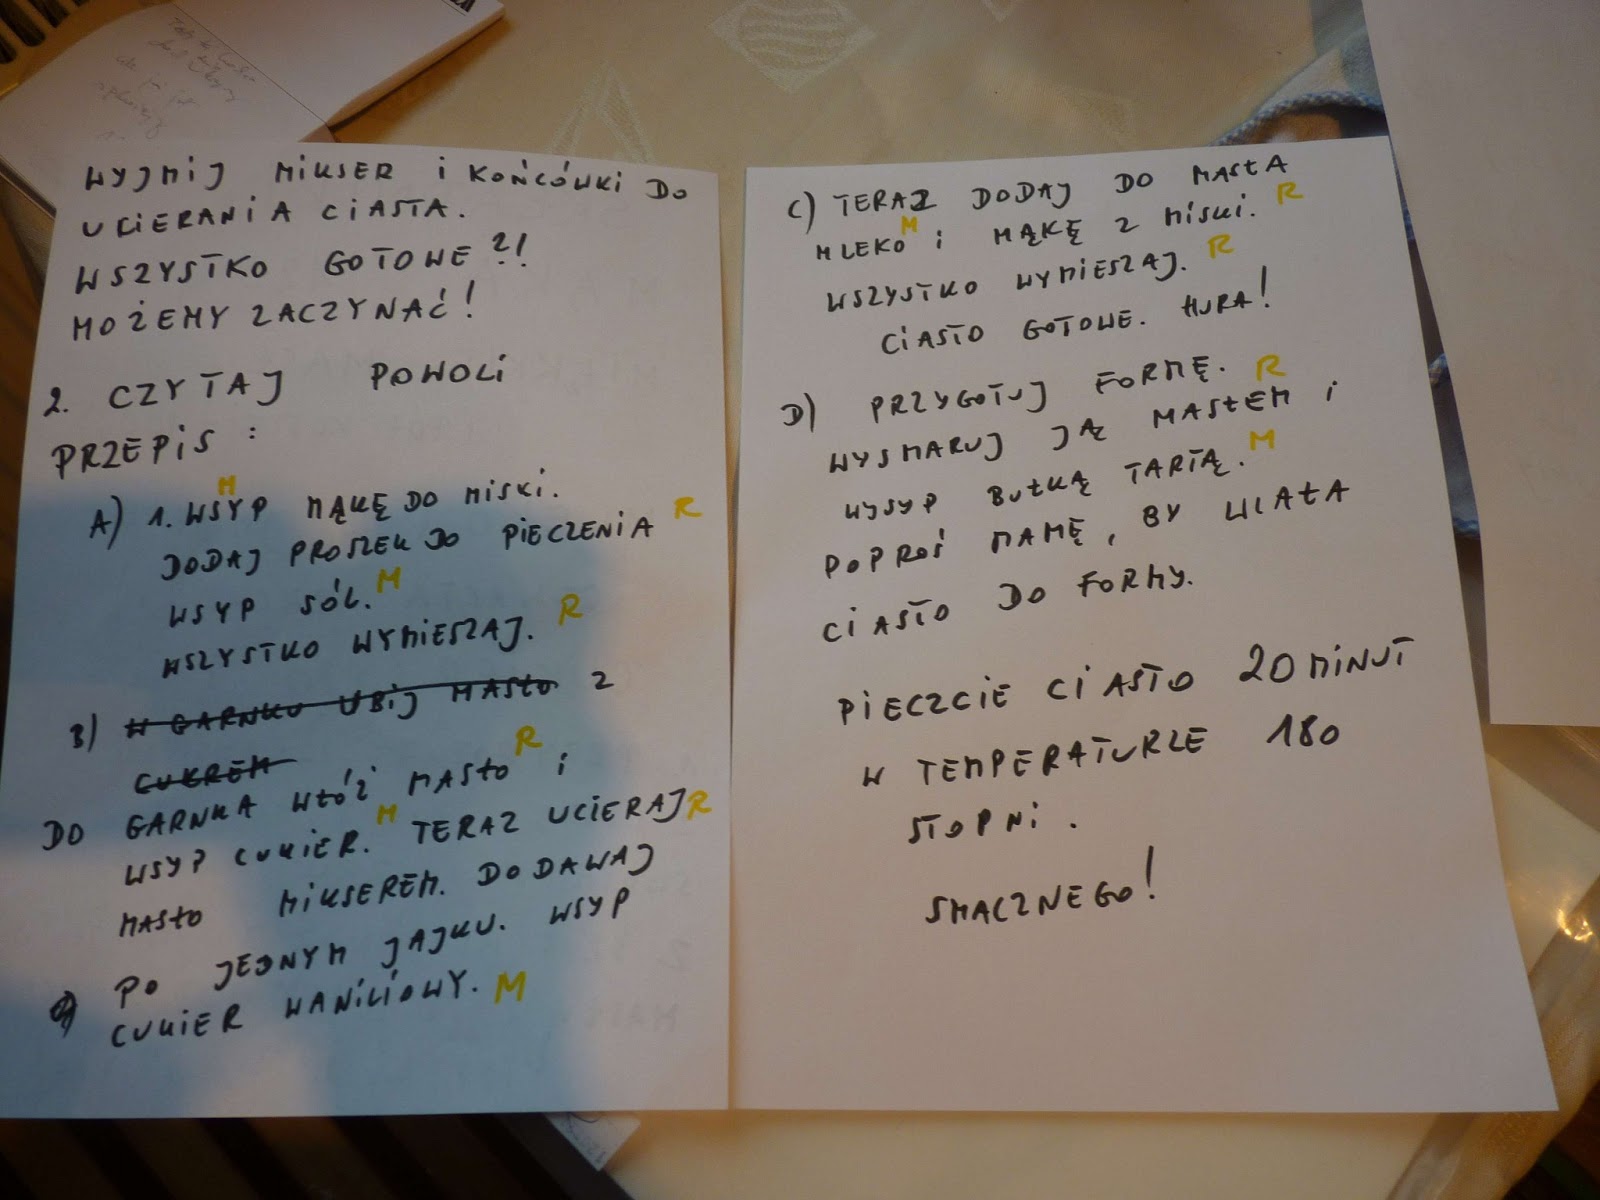 WYJMIJ MIKSER I KOŃCÓWKI DO
UCIERANIA CIASTA.
WSZYSTKO GOTOWE?!
MOŻEMY ZACZYNAĆ!
2. CZYTAJ POWOLI
PRZEPIS :
M
A) 1. WSYP MĄKĘ DO MISKI.
DODAJ PROSZEK DO PIECZENIA R
WSYP SÓL. M
WSZYSTKO WYMIESZAJ. R
B) W GARNKU UBIJ MASŁO Z
CUKREM
DO GARNKA WŁÓŻ MASŁO R i
WSYP CUKIER. M TERAZ UCIERAJ R
MASŁO MIKSEREM. DODAWAJ
PO JEDNYM JAJKU. WSYP
CUKIER WANILIOWY. M
C) TERAZ DODAJ DO MASŁA
MLEKO M i MĄKĘ Z MISKI. R
WSZYSTKO WYMIESZAJ. R
CIASTO GOTOWE. HURA!
D) PRZYGOTUJ FORMĘ. R
WYSMARUJ JĄ MASŁEM i
WYSYP BUŁKĄ TARTĄ. M
POPROŚ MAMĘ, BY WLAŁA
CIASTO DO FORMY.
PIECZCIE CIASTO 20 MINUT
W TEMPERATURZE 180
STOPNI.
SMACZNEGO!